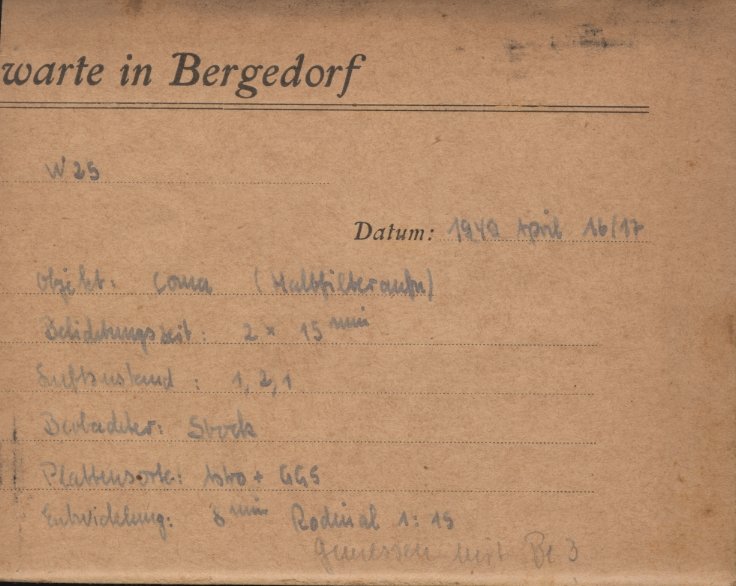 warte in Bergedorf
W 25
Datum: 1949 April 16/17
Objekt: Coma (Halbfilteraufn)
Belichtungszeit: 2 × 15 min
Luftzustand: 1, 2, 1
Beobachter: Stock
Plattensorte: Astro + GG5
Entwicklung: 8 min Rodinal 1:15
Gemessen mit